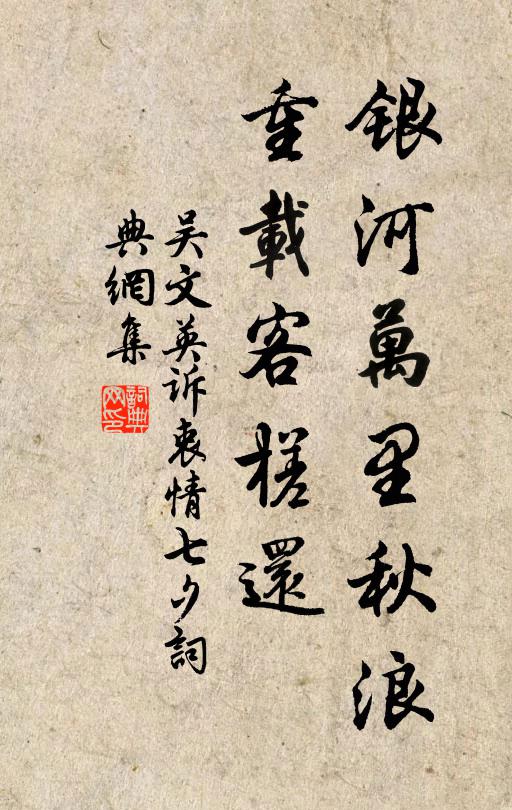 銀河萬里秋浪
重載客槎還
吳文英訴衷情七夕詞
典網集
詞典网印